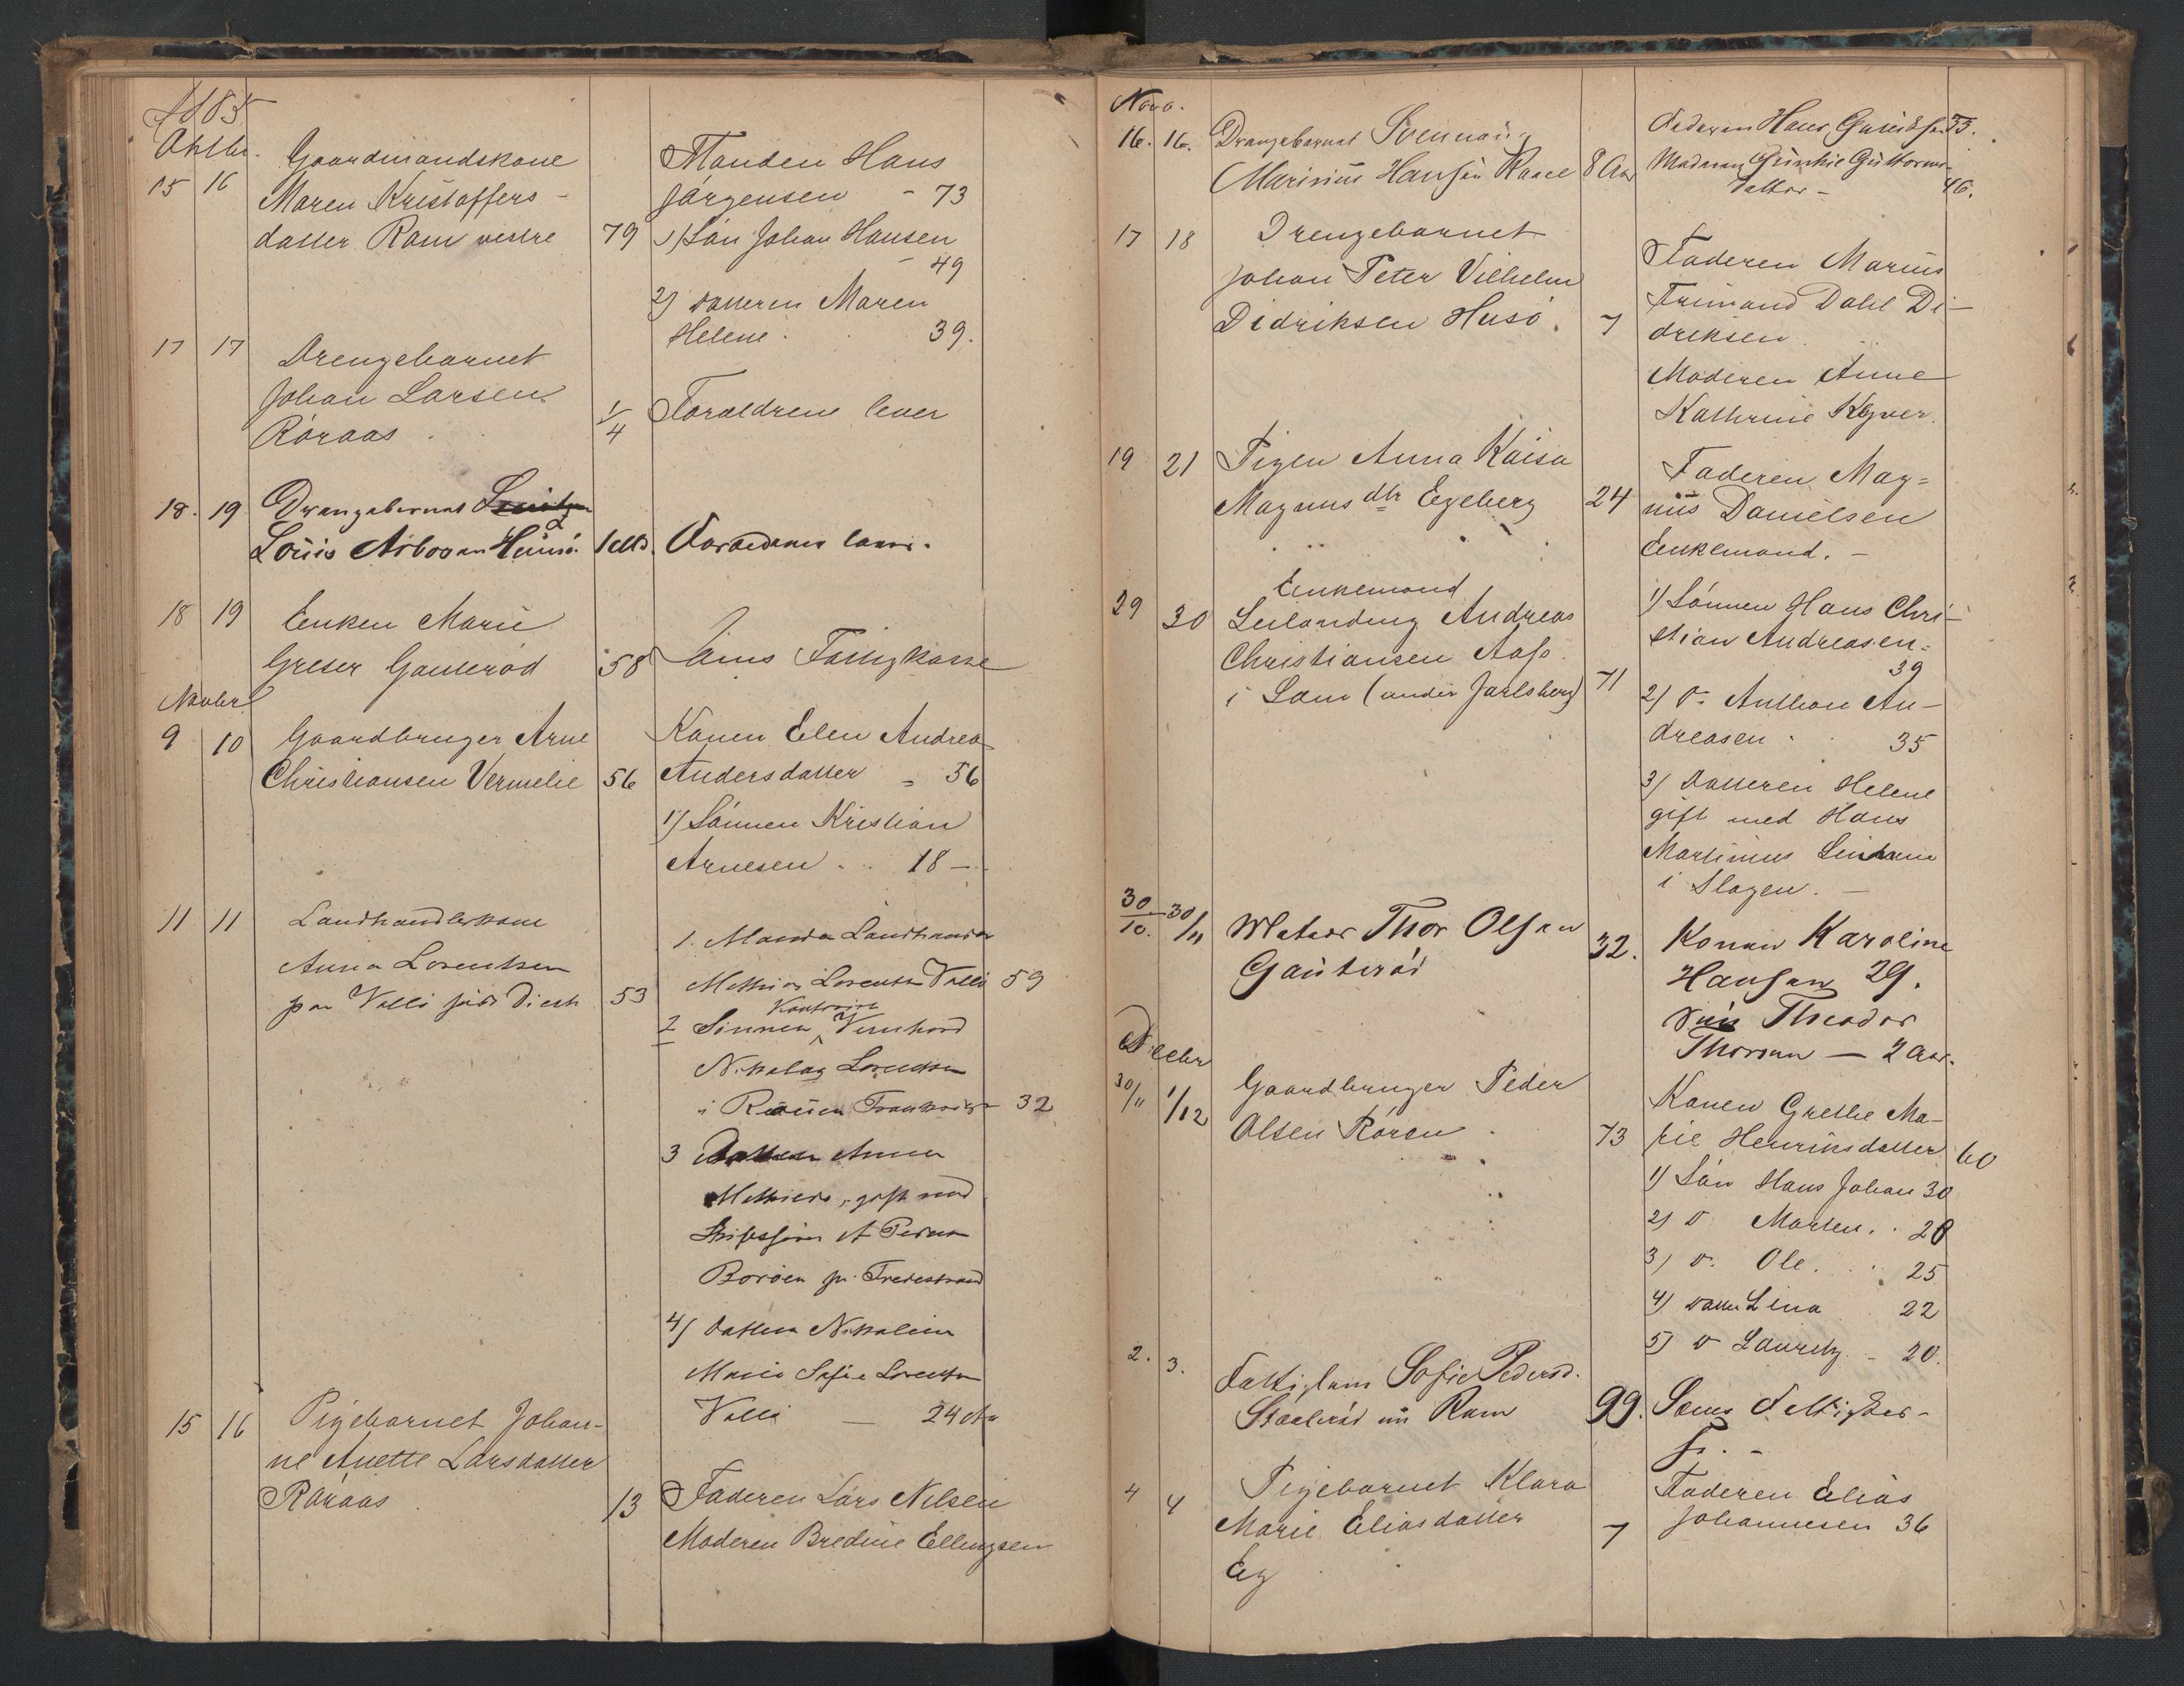 1885
Oktbr.
15 16 Gaardmandskone
Maren Kristoffers-
datter Ram vestre 79
Manden Hans
Jørgensen - 73
1) Søn Johan Hansen
- 49
2) Datteren Maren
Helene . 39.
17 17 Drengebarnet
Johan Larsen
Røraas . 1/4
Forældrene lever
18. 19 Drengebarnet
Louis
18 19 Enken Marie
Greser Gauterød 58
Sems Fattigkasse
Novbr
9 10 Gaardbruger Arne
Christiansen Vermelie 56
Konen Elen Andrea
Andersdatter = 56
1) Sønnen Kristian
Arnesen . . 18 -
11 11 Landhandlerkone
Anna Lorentsen
paa Vallø 53
1. Manden Landhandler
Mathias Lorentsen Vallø 59
2 Sønnen Kontorist
Nikolay Lorentsen
i 32
3 Datteren Anna
Mathilde, gift med
Skibsfører A Pedersen
Borøen pr. Tvedestrand
4) Datteren Nikoline
Marie Sofie Lorentsen
Vallø — 24 Aar
15 16 Pigebarnet Johan-
ne Anette Larsdatter
Røraas . 13
Faderen Lars Nilsen
Moderen Bredine Ellingsen
Novb.
16. 16. Drengebarnet
Marinius Hansen 8 Aar
Faderen Hans 53.
Moderen Guttorms-
datter - 46.
17 18 Drengebarnet
Johan Peter Vilhelm
Didriksen Husø. 7
Faderen Marius
Dahl Di-
driksen
Moderen Anne
Kathrine
19 21 Pigen Anna Kaisa
Magnusdtr Egeberg 24
Faderen Mag=
nus Danielsen
Enkemand. -
29 30 Enkemand
Leilænding Andreas
Christiansen Aas
i Sem (under Jarlsberg) 71
1) Sønnen Hans Chri-
stian Andreasen=
39
2) D. Anthon An-
dreasen . . 35
3) Datteren Helene
gift med Hans
Martinius
i Slagen. -
30/10. 30/11 Matros Thor Olsen
Gauterød 32.
Konen Karoline
Hansen 29.
Søn Theodor
Thorsen — 2 Aar.
Decbr
30/11 1/12 Gaardbruger Peder
Olsen Røren . 73
Konen Grethe Ma-
rie Henriksdatter 60
1) Søn Hans Johan 30
2) D. Morten . . 28
3) D. Ole . . . 25
4) Datter Lina . 22
5) D Lauritz - 20.
2. 3. Fattiglem Sofie Pedersd.
Ram 99.
Sems Fattigkas-
se. -
4 4 Pigebarnet Klara
Marie Eliasdatter 7
Eg
Faderen Elias
Johannesen 36